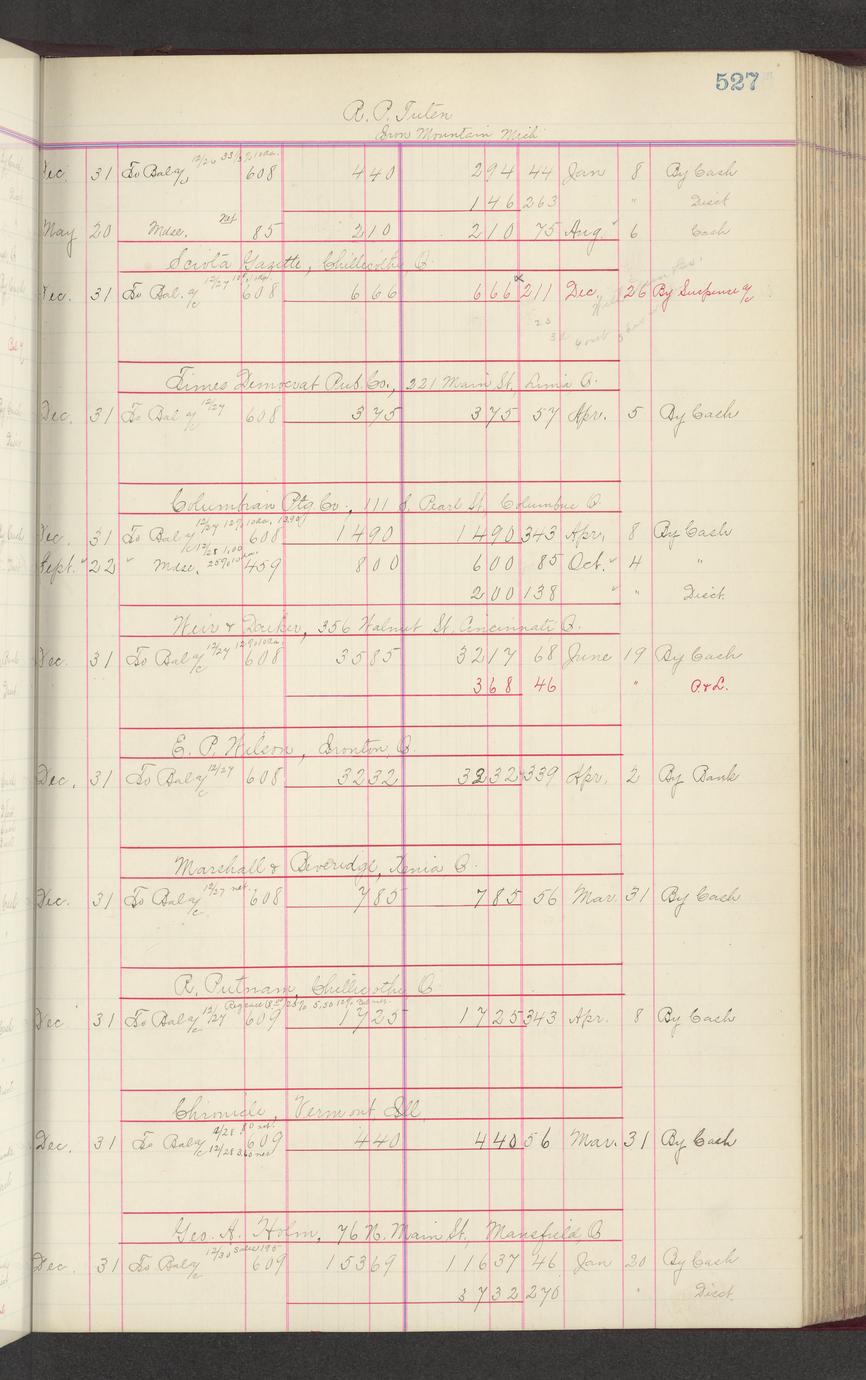 527
R. P. Tuten
Iron Mountain Mich
Dec. 31 To Bal a/c 12/26 33 1/3 % 10 Da. 608 4 40 2 94 44 Jan 8 By Cash
1 46 263 " Disct
May 20 Mdse. net 85 2 10 2 10 75 Aug. 6 Cash
Sciota Gazette, Chillicothe O.
Dec. 31 To Bal. a/c 12/27 608 6 66 6 66 x 211 Dec. 26 By Suspense a/c
Times Democrat Pub. Co., 221 Main St., Lima O.
Dec. 31 To Bal a/c 12/27 608 3 75 3 75 57 Apr. 5 By Cash
Columbian Ptg. Co., 111 S. Pearl St. Columbus O.
Dec. 31 To Bal a/c 12/27 12% 10 Da. 13.90 12/28 1.00 608 14 90 14 90 343 Apr. 8 By Cash
Sept. 22 " Mdse. 25% 10 Da. 459 8 00 6 00 85 Oct. 4 "
2 00 138 " " Disct.
Weir & 356 Walnut St. Cincinnati O.
Dec. 31 To Bal a/c 12/27 12% 10 Da. 608 35 85 32 17 68 June 19 By Cash
3 68 46 " P. & L.
E. P. Wilson, Ironton, O.
Dec. 31 To Bal a/c 12/27 608 32 32 32 32 339 Apr. 2 By Bank
Marshall & Beveridge, Xenia O.
Dec. 31 To Bal a/c 12/27 net. 608 7 85 7 85 56 Mar. 31 By Cash
R. Putnam, Chillicothe O.
Dec. 31 To Bal a/c 12/27 609 17 25 17 25 343 Apr. 8 By Cash
Chronicle, Vermont Ill.
Dec. 31 To Bal a/c 12/28 3.60 net 609 4 40 4 40 56 Mar. 31 By Cash
Geo. A. Holm, 76 N. Main St., Mansfield O
Dec. 31 To Bal a/c 12/30 609 153 69 116 37 46 Jan 20 By Cash
37 32 270 " Disct.